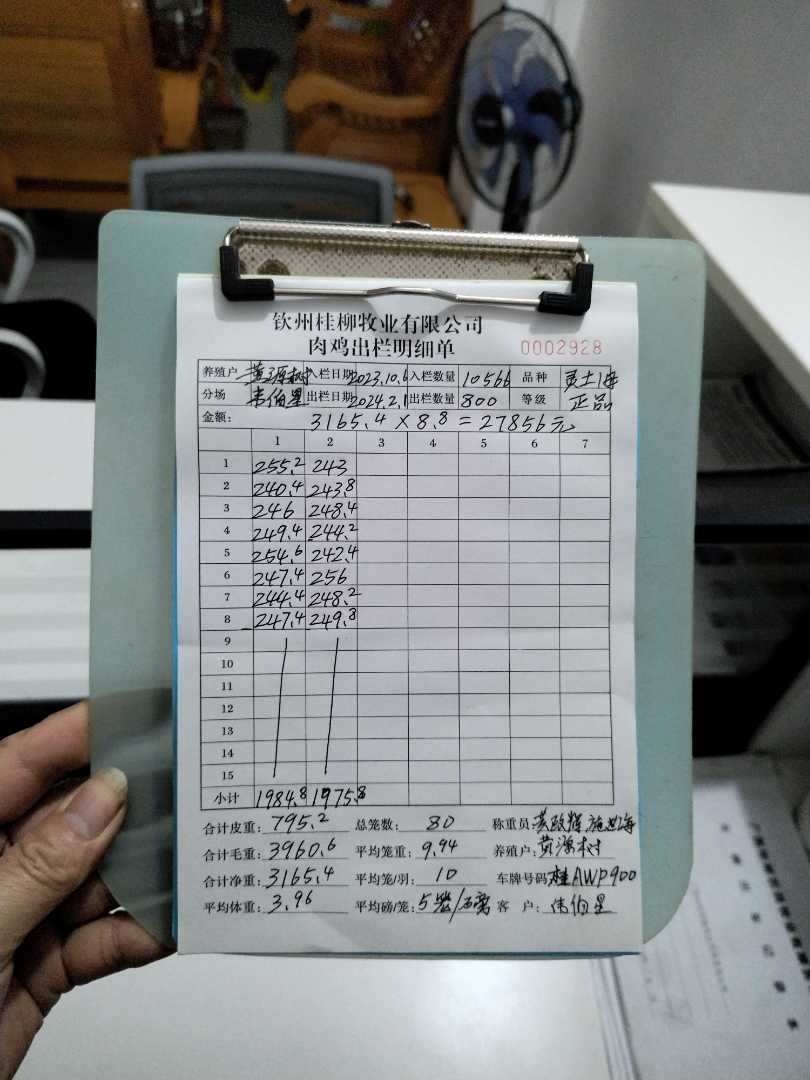 钦州桂柳牧业有限公司
肉鸡出栏明细单 0002928
养殖户 黄源树 入栏日期 2023.10.6 入栏数量 10566 品种
分场 韦伯星 出栏日期 2024.2.1 出栏数量 800 等级 正品
金额: 3165.4 × 8.8 = 27856元
1 2 3 4 5 6 7
1 255.2 243
2 240.4 243.8
3 246 248.4
4 249.4 244.2
5 254.6 242.4
6 247.4 256
7 244.4 248.2
8 247.4 249.8
9
10
11
12
13
14
15
小计 1984.8 1975.8
合计皮重: 795.2 总笼数: 80 称重员:
合计毛重: 3960.6 平均笼重: 9.94 养殖户: 黄源树
合计净重: 3165.4 平均笼/羽: 10 车牌号码 桂AWP900
平均体重: 3.96 平均磅/笼: 5笼/ 客户: 伟伯星